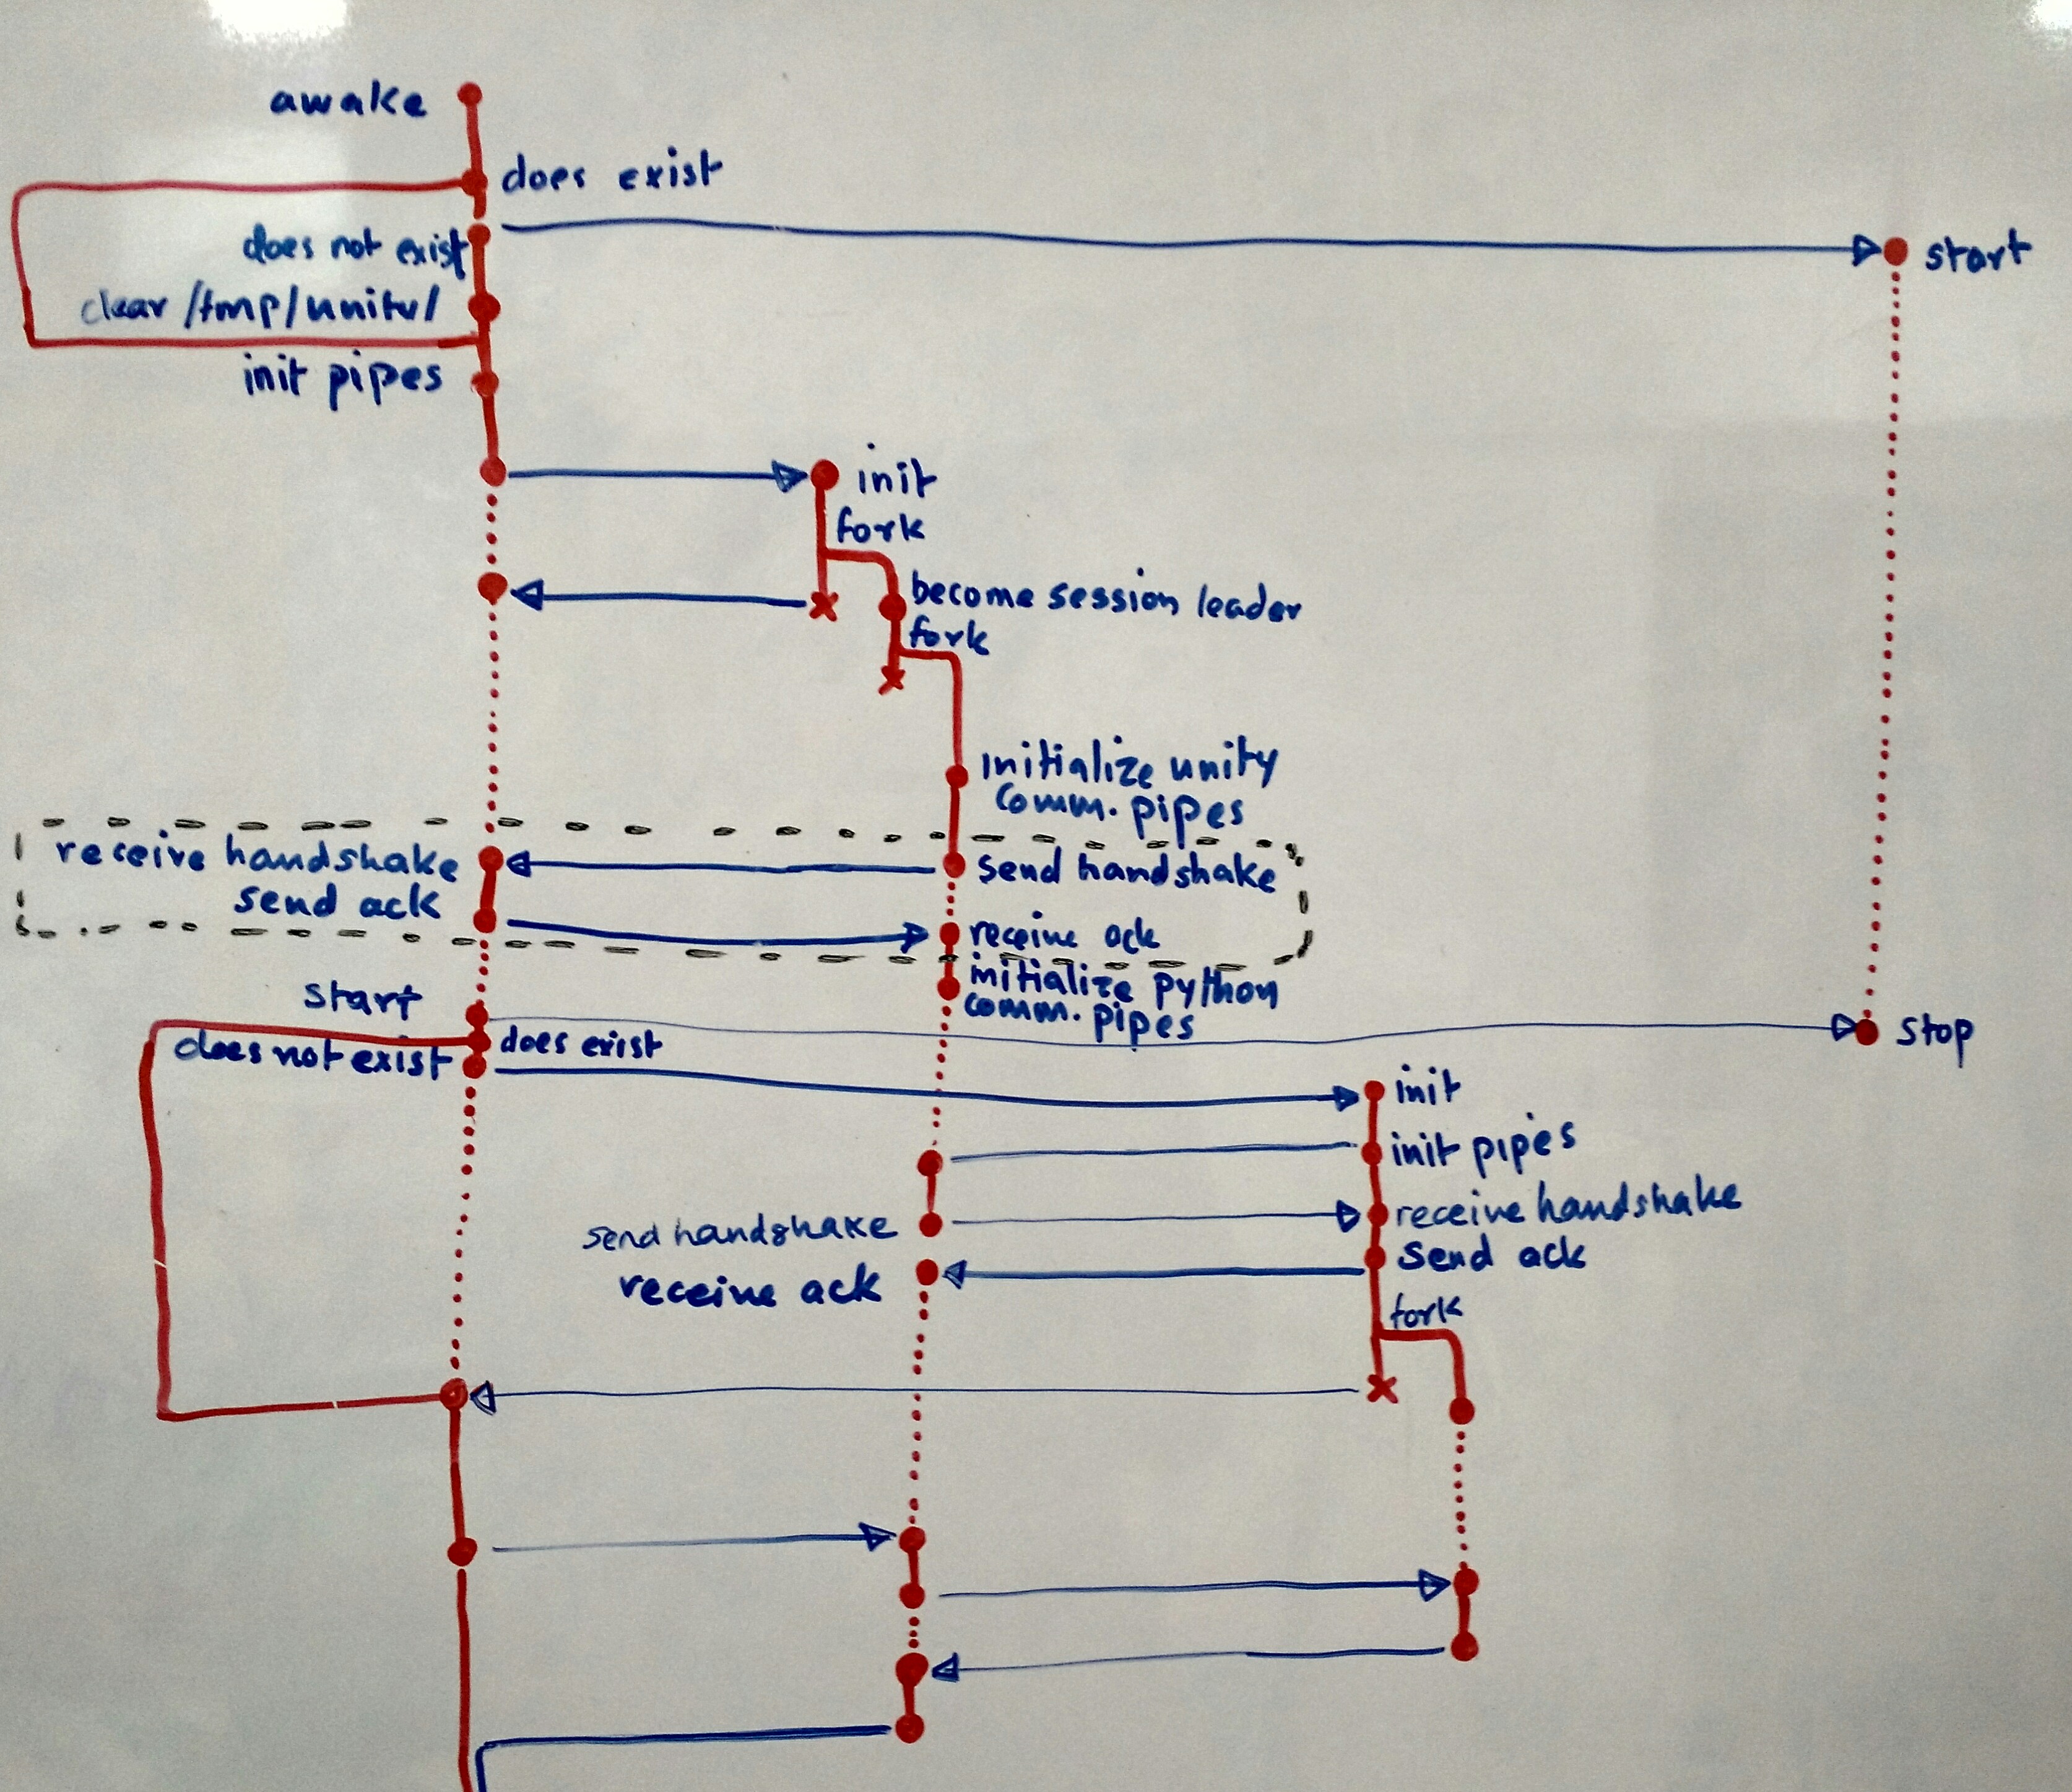 awake
does exist
does not exist
start
clear /tmp/unity/
init pipes
init
fork
become session leader
fork
Initialize unity
comm. pipes
receive handshake
send handshake
send ack
receive ack
initialize python
comm. pipes
start
does exist
stop
does not exist
init
init pipes
receive handshake
send handshake
send ack
receive ack
fork